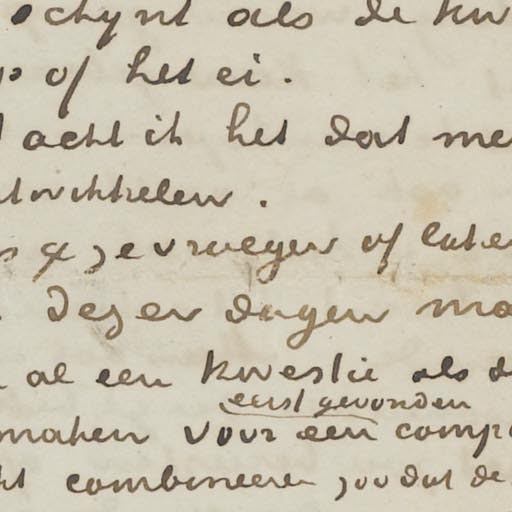 schynt als de kw
p of het ei.
acht ik het dat me
twikkelen.
ge vroeger of late
Dezer dagen ma
al een kwestie als d
eerst gevonden
maken voor een comp
ht combineeren zoodat de